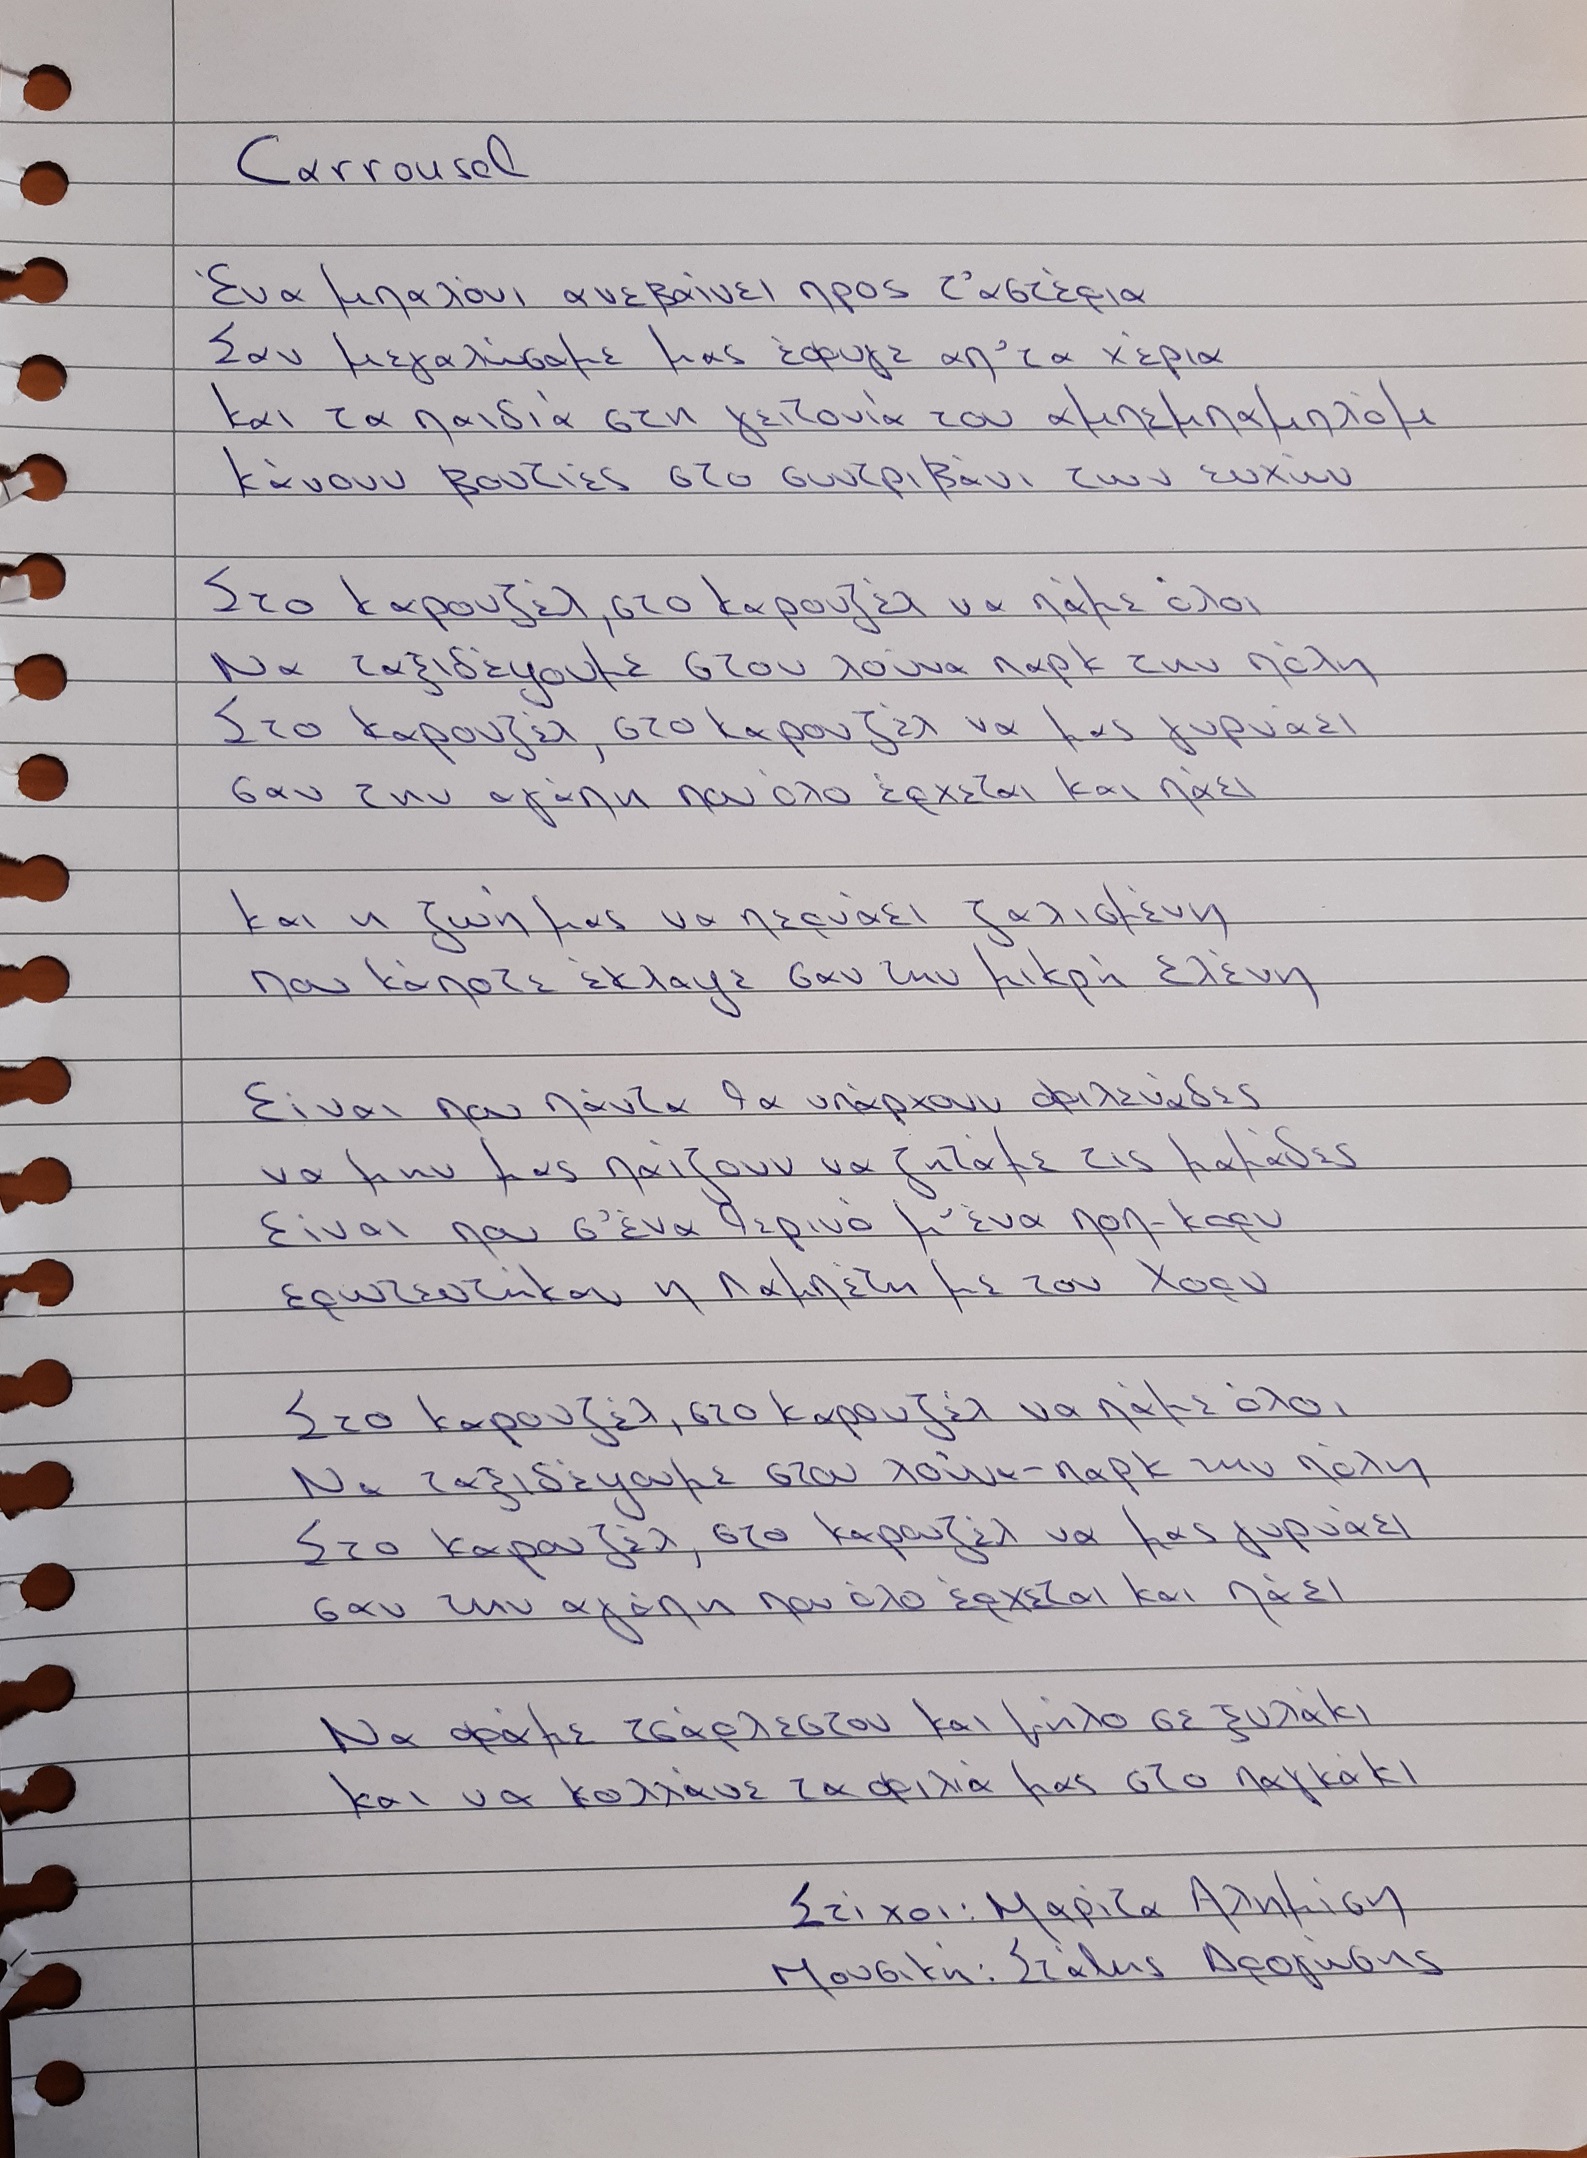 Carrousel
Ένα μπαλόνι ανεβαίνει προς τ'αστέρια
Σαν μεγαλώσαμε μας έφυγε απ'τα χέρια
και τα παιδιά στη γειτονιά του αμπεμπαμπλόμ
κάνουν βουτιές στο συντριβάνι των ευχών
Στο καρουζέλ, στο καρουζέλ να πάμε όλοι
Να ταξιδέψουμε στου λούνα παρκ την πόλη
Στο καρουζέλ, στο καρουζέλ να μας γυρνάει
σαν την αγάπη που όλο έρχεται και πάει
και η ζωή μας να περνάει ζαλισμένη
που κάποτε έκλαψε σαν την μικρή Ελένη
Είναι που πάντα θα υπάρχουν φιλενάδες
να μην μας παίζουν να ζητάμε τις μαμάδες
Είναι που σ'ένα θερινό μ'ένα ποπ-κορν
ερωτευτήκαν η Λαμπέτη με τον Χορν
Στο καρουζέλ, στο καρουζέλ να πάμε όλοι
Να ταξιδέψουμε στου λούνα-παρκ την πόλη
Στο καρουζέλ, στο καρουζέλ να μας γυρνάει
σαν την αγάπη που όλο έρχεται και πάει
Να φάμε τσάρλεστον και μήλο σε ξυλάκι
και να κολλάνε τα φιλιά μας στο παγκάκι
Στίχοι: Μαρίτα Αλημίση
Μουσική: Στάθης Δρογώσης